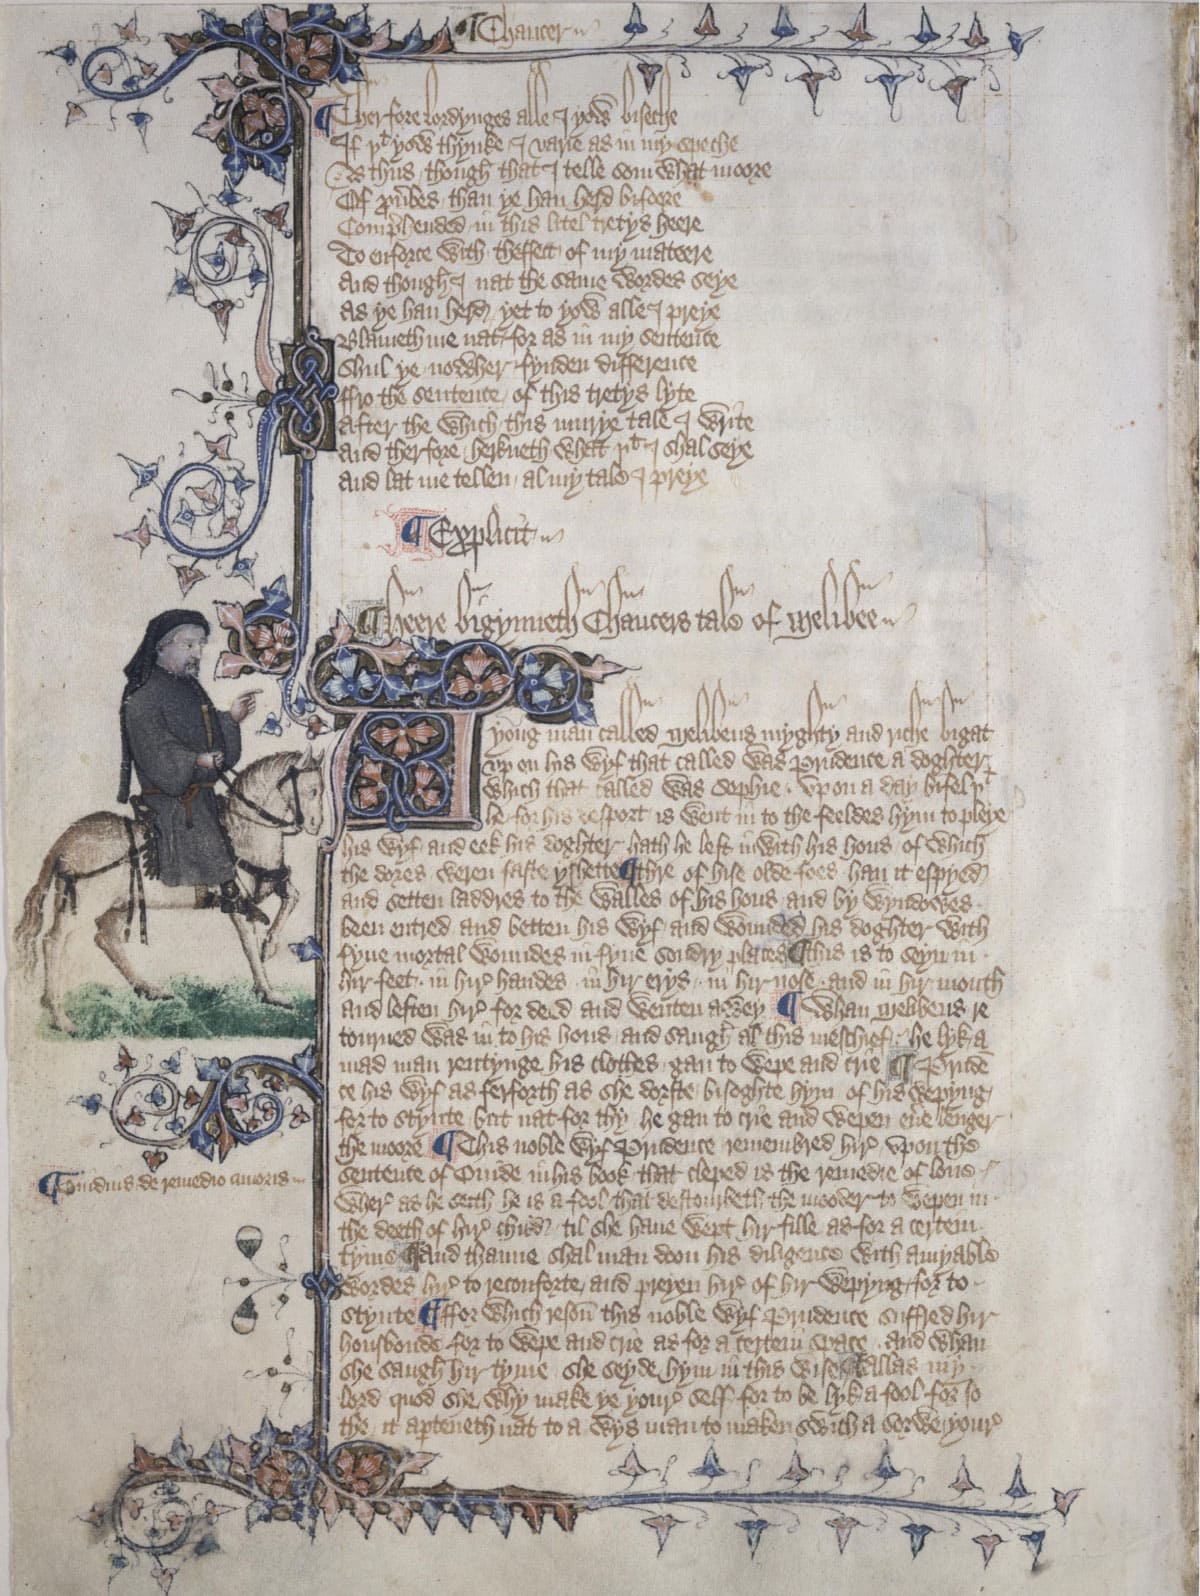 ¶ Chaucer
¶ Therfore lordynges alle I yow biseche
If þt yow thynke I varie as in my speche
As thus though that I telle som what moore
Of prouerbes than ye han herd bifoore
Comprehended in this litel tretys heere
To enforce with theffect of my mateere
And though I nat the same wordes seye
As ye han herd yet to yow alle I preye
Blameth me nat for as in my sentence
Shul ye nowher fynden difference
ffro the sentence of this tretys lyte
After the which this murye tale I write
And therfore herkneth what þt I shal seye
And lat me tellen al my tale I preye
¶ Explicit
¶ Heere bigynneth Chaucers tale of Melibee
A yong man called Melibeus myghty and riche bigat
vp on his wyf that called was Prudence a doghter
which that called was Sophie. vpon a day bifel þt
he for his desport is went in to the feeldes hym to pleye
his wyf and eek his doghter hath he left inwith his hous of which
the dores weren faste yshette ¶ thre of hise olde foes han it espyed
and setten laddres to the walles of his hous and by wyndowes
been entred and betten his wyf and wounded his doghter with
fyue mortal woundes in fyue sondry places ¶ this is to seyn in
hir feet. in hir handes. in hir erys. in hir nose. and in hir mouth
and leften hir for deed and wenten awey ¶ Whan Melibeus re
tourned was in to his hous and saugh al this meschief. he lyk a
mad man rentynge his clothes gan to wepe and crie ¶ Pruden
ce his wyf as ferforth as she dorste bisoghte hym of his wepyng
for to stynte but nat for thy he gan to crie and wepen euere lenger
the moore ¶ This noble wyf Prudence remembred hir vpon the
sentence of Ouide in his book that cleped is the remedie of loue
wher as he seith he is a fool that destourbeth the mooder to wepen in
the deeth of hir child til she haue wept hir fille as for a certein
tyme ¶ and thanne shal man doon his diligence with amyable
¶ Ouidius de remedio amoris
wordes hir to reconforte and preyen hir of hir wepyng for to
stynte ¶ ffor which resoun this noble wyf Prudence suffred hir
housbonde for to wepe and crie as for a certein space. and whan
she saugh hir tyme she seyde hym in this wise ¶ allas my
lord quod she why make ye your self for to be lyk a fool for so
the it aperteneth nat to a wys man to maken swich a sorwe your